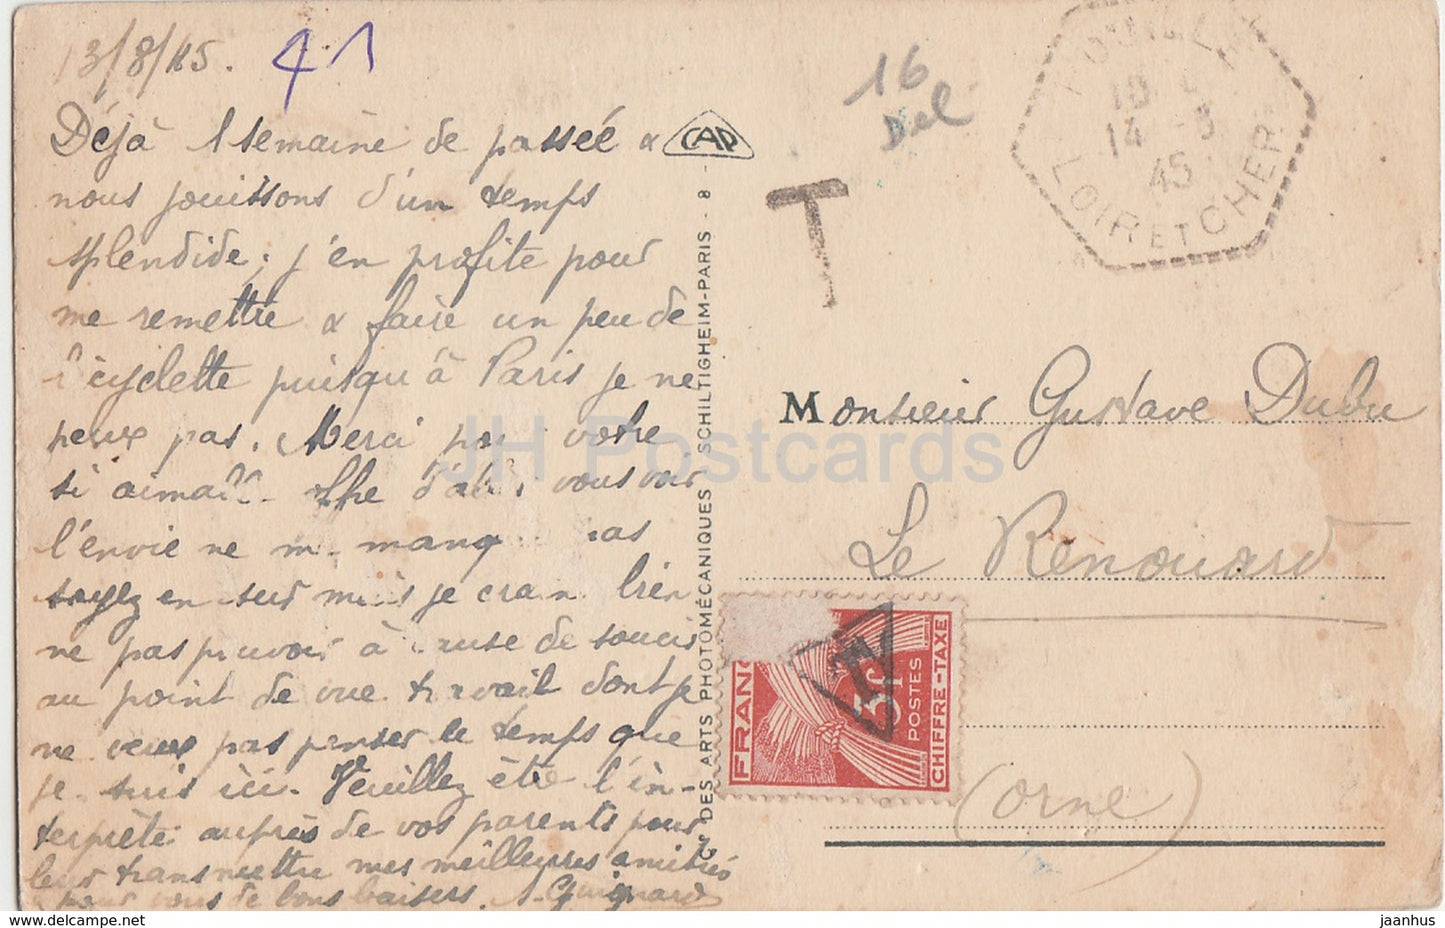 13/8/45.
41
Déjà 1 semaine de passée &
nous jouissons d'un temps
splendide; j'en profite pour
me remettre & faire un peu de
bicyclette puisqu'à Paris je ne
peux pas. Merci pour votre
si aimable d'aller vous voir
l'envie ne me manque pas
soyez en sur mais je crains bien
ne pas pouvoir à cause de soucis
au point de vue travail dont je
ne veux pas penser le temps que
je suis ici. Veuillez être l'in-
terprète auprès de vos parents pour
leur transmettre mes meilleures amitiés
& pour vous de bons baisers. A. Guignard
CAP
Cie DES ARTS PHOTOMÉCANIQUES SCHILTIGHEIM-PARIS - 8 -
16
Del
T
POUILLÉ
14 -8
45
LOIR ET CHER
Monsieur Gustave Dubu
Le Renouard
(Orne)
FRANC
3f
POSTES
CHIFFRE-TAXE
T
JH Postcards
www.delcampe.net
jaanhus